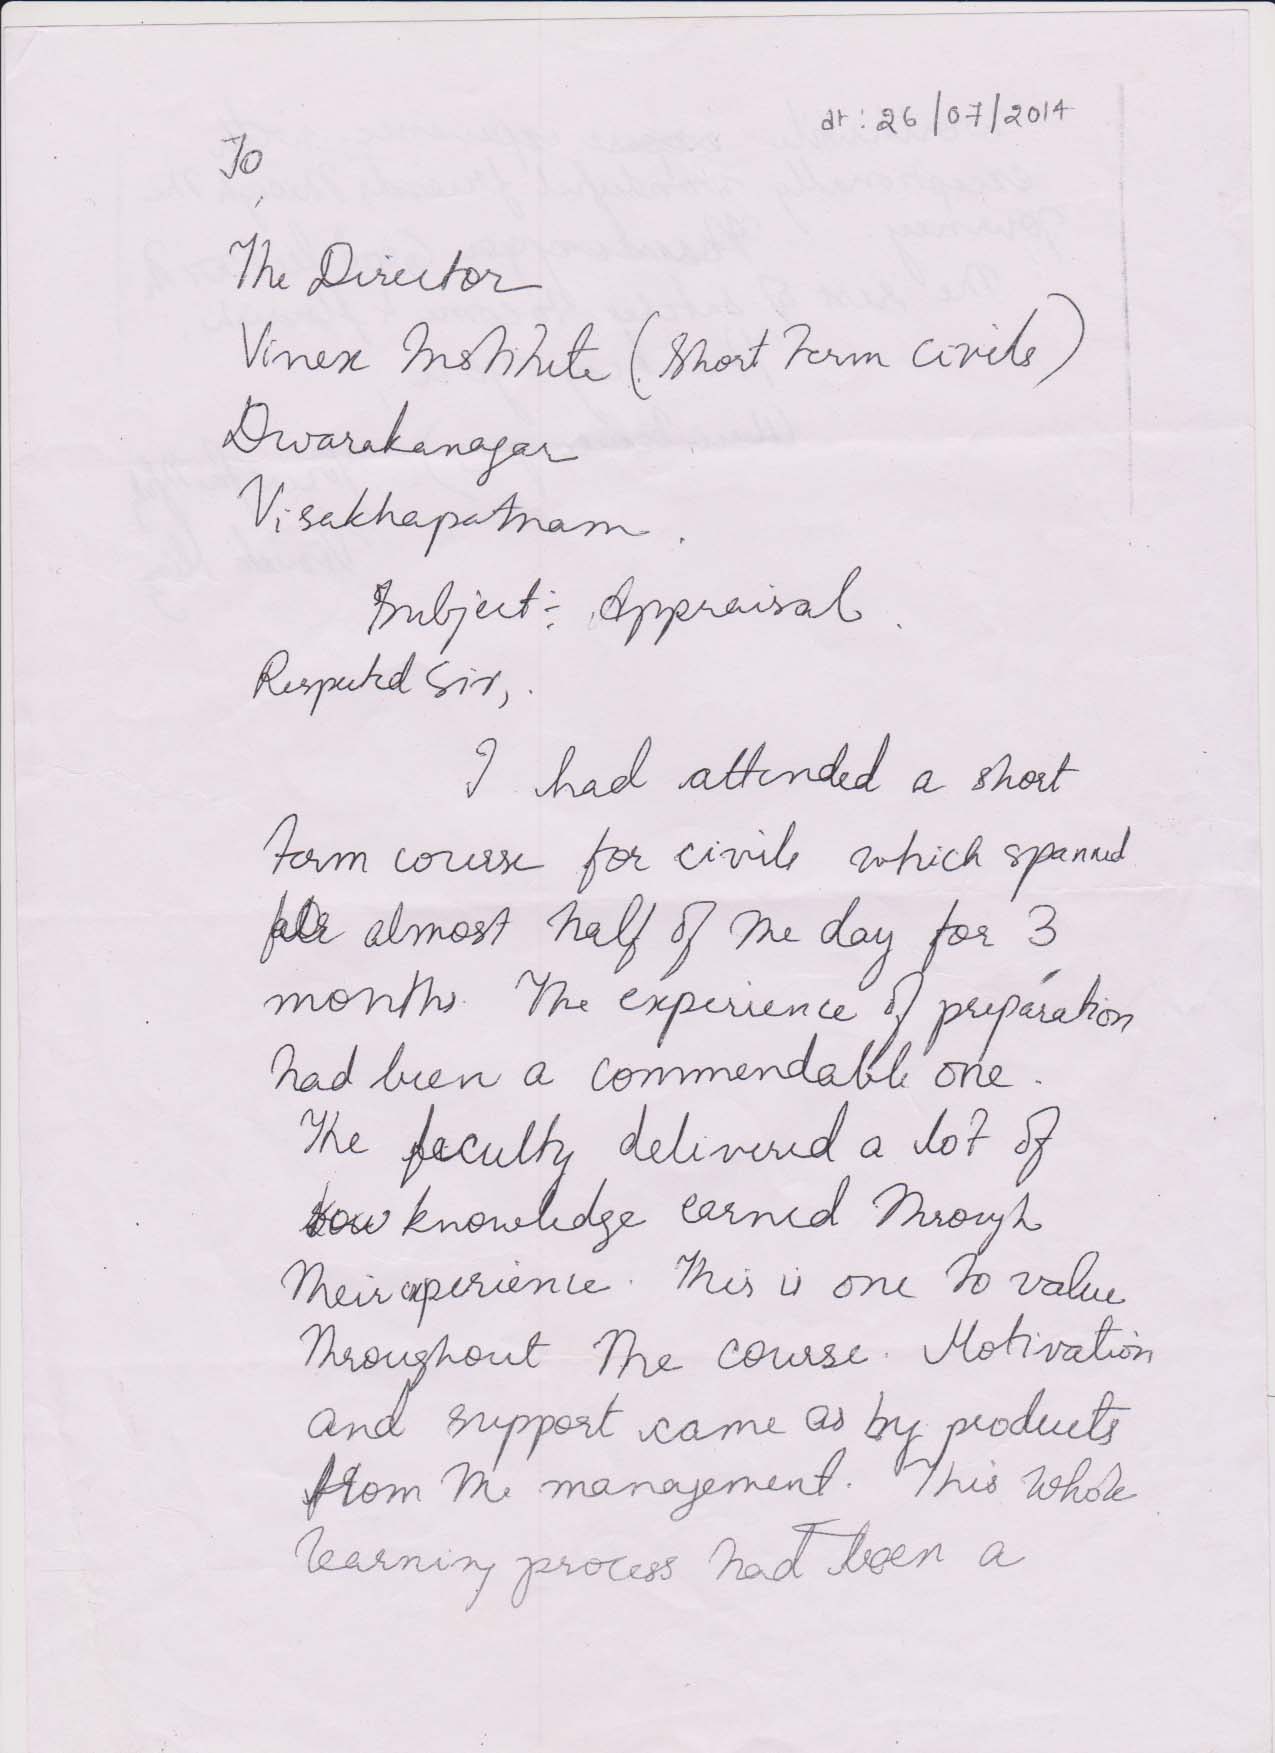 dt: 26/07/2014
To
,
The Director
Vinex Institute (Short term civils)
Dwarakanagar
Visakhapatnam.
Subject:- Appraisal.
Respected Sir,.
I had attended a short
term course for civils which spanned
almost half of the day for 3
months. The experience of preparation
had been a commendable one.
The faculty delivered a lot of
knowledge earned through
their experience. This is one to value
throughout the course. Motivation
and support came as by products
from the management. This whole
learning process had been a